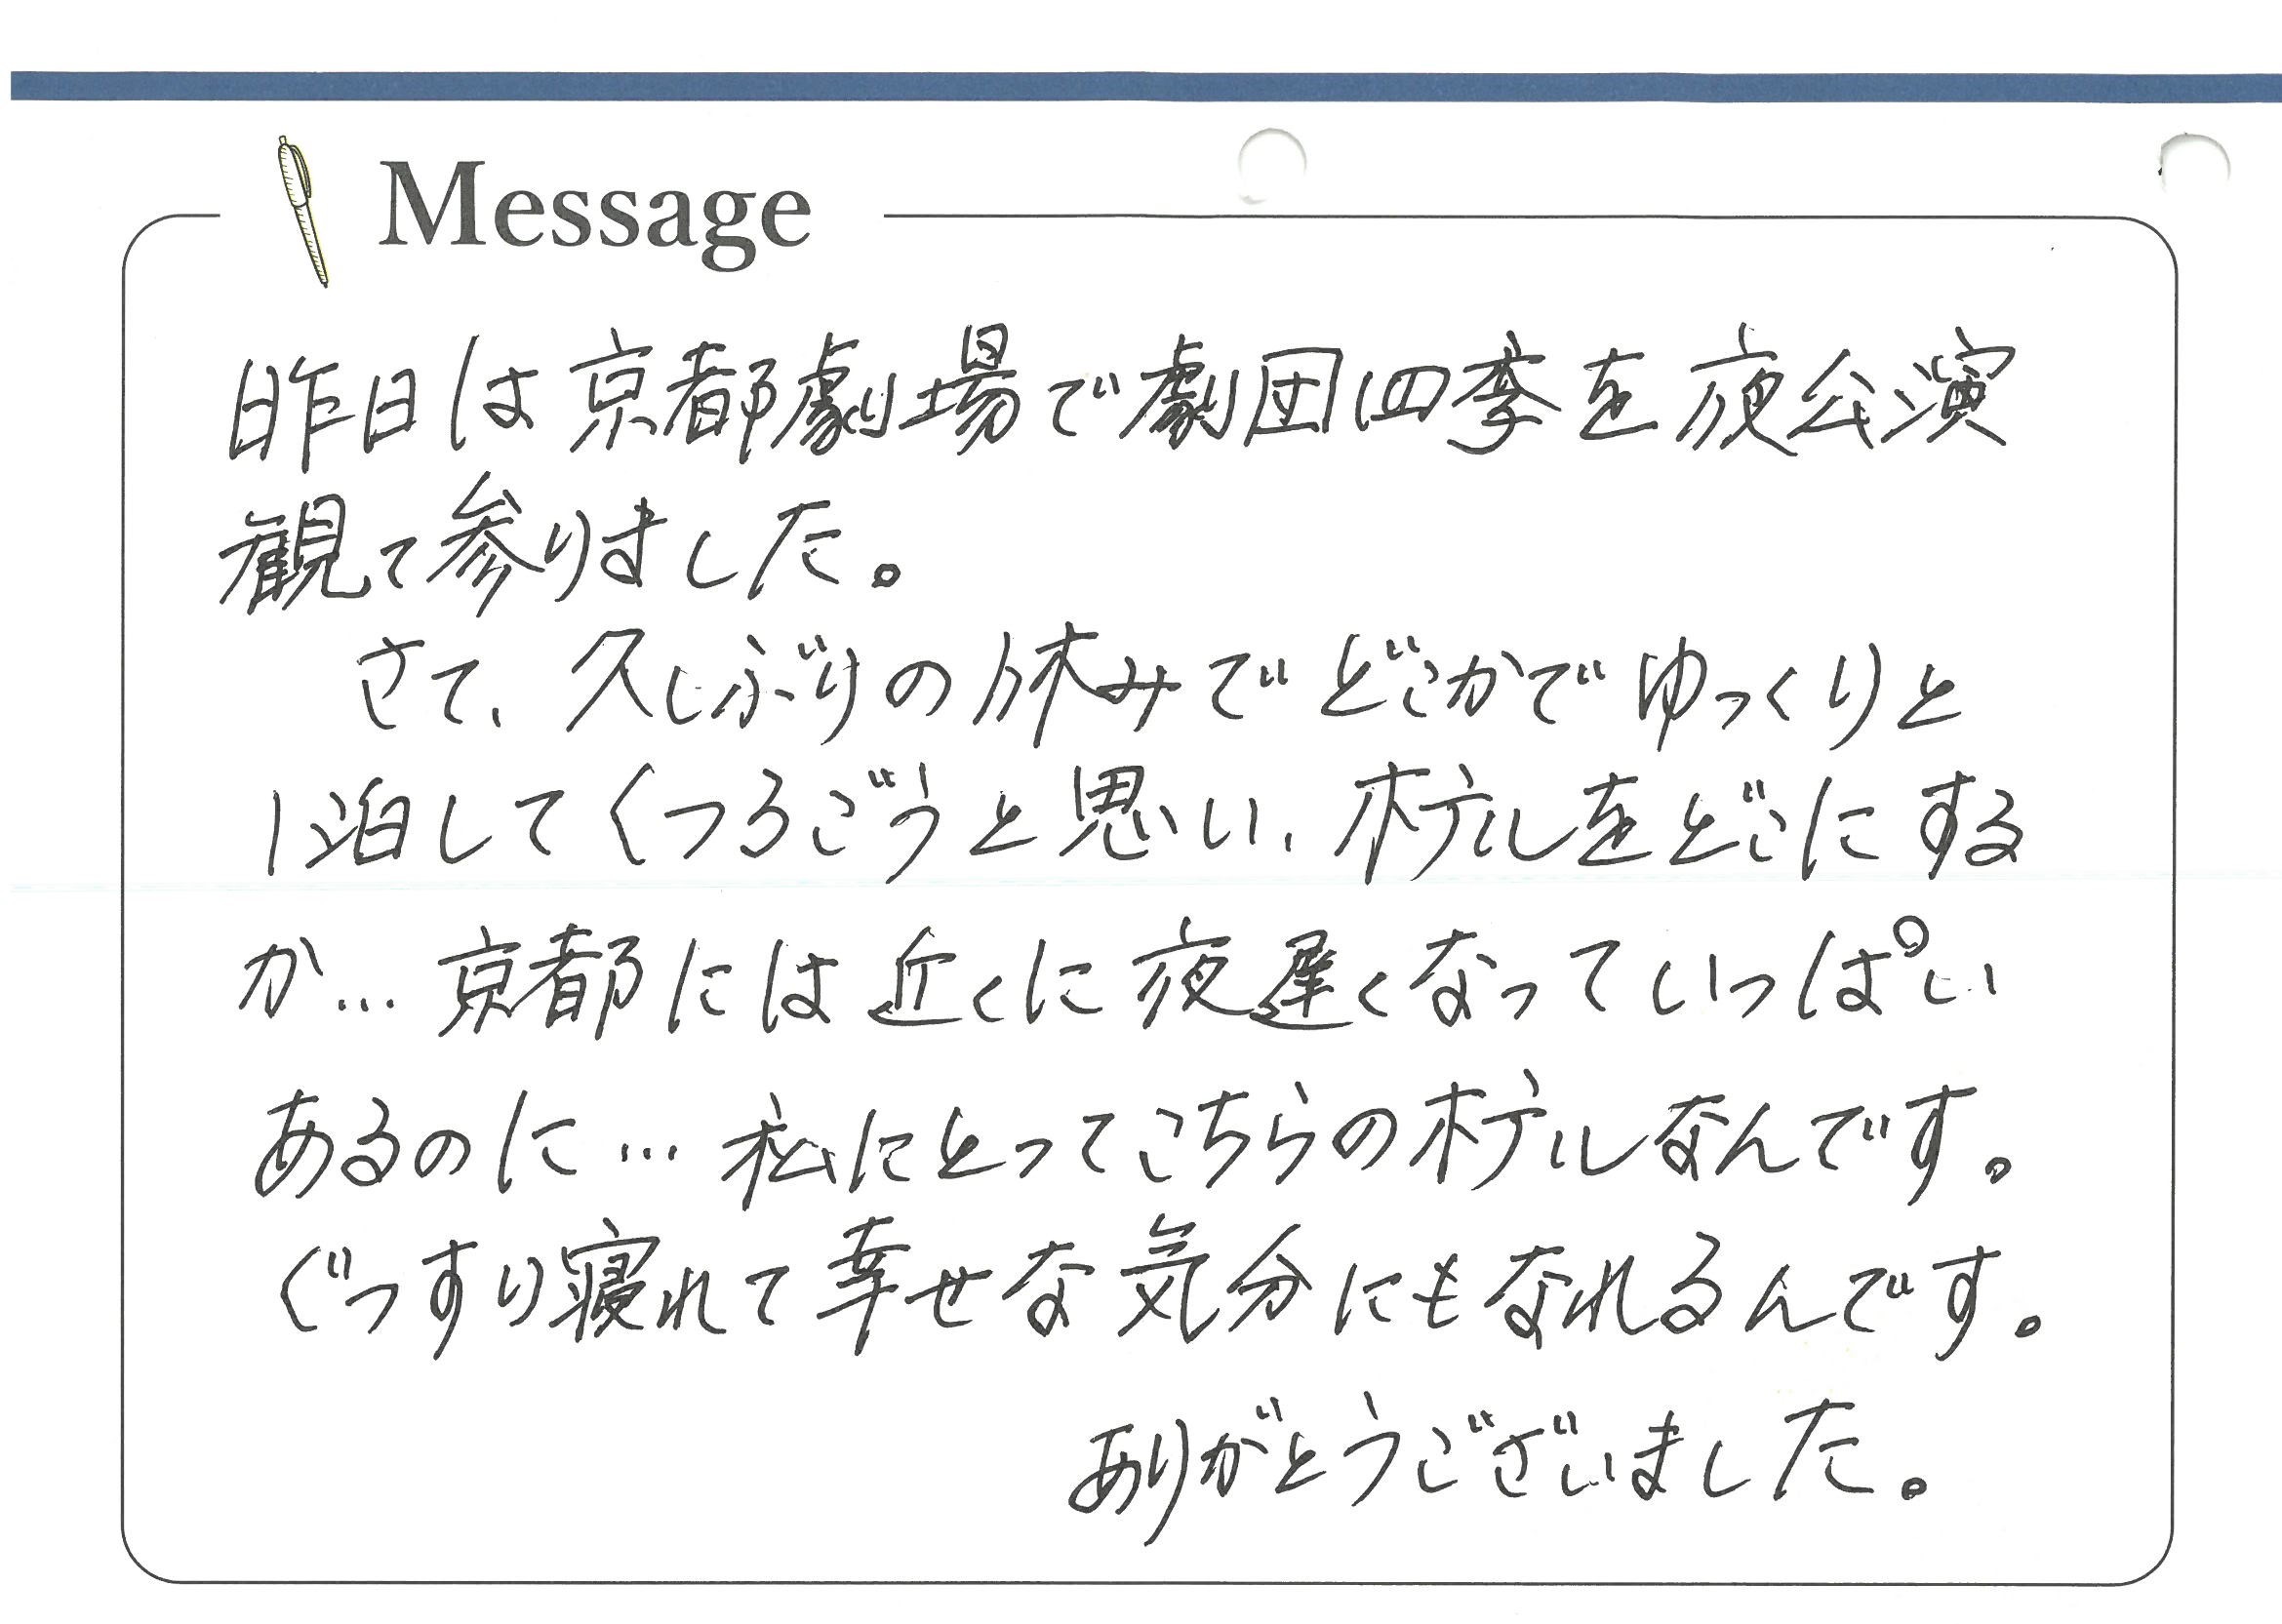 Message
昨日は京都劇場で劇団四季を夜公演
観て参りました。
さて、久しぶりの休みでどこかでゆっくりと
1泊してくつろごうと思い、ホテルをどこにする
か…京都には近くに夜遅くなっていっぱい
あるのに…私にとってこちらのホテルなんです。
ぐっすり寝れて幸せな気分にもなれるんです。
ありがとうございました。